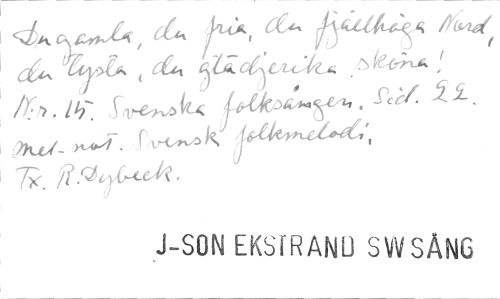 Du gamla, du fria, du fjällhöga Nord,
du tysta, du glädjerika sköna!
N:r. 15. Svenska folksången. Sid. 22.
mel-not. Svensk folkmelodi.
Tx. R. Dybeck.
J-SON EKSTRAND SW SÅNG